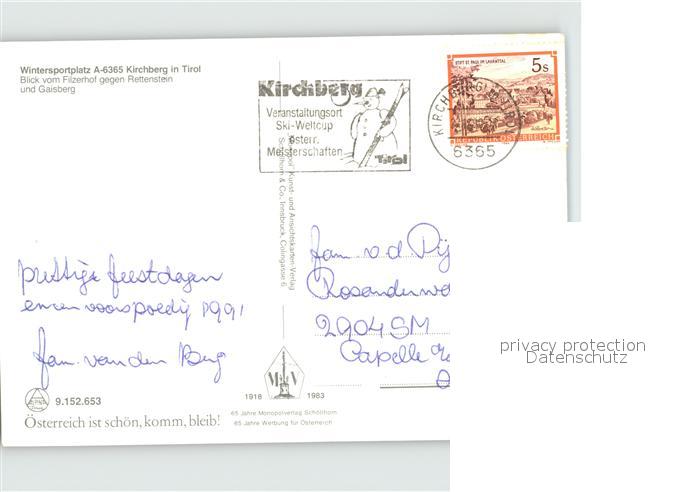 Wintersportplatz A-6365 Kirchberg in Tirol
Blick vom Filzerhof gegen Rettenstein
und Gaisberg
Kirchberg
Veranstaltungsort
Ski-Weltcup
österr.
Meisterschaften
Tirol
STIFT ST. PAUL IM LAVANTTAL
5s
REPUBLIK ÖSTERREICH
KIRCHBERG IN TIROL
6365
Kunst- und Ansichtskarten-Verlag
Schöllhorn & Co., Innsbruck, Colingasse 6
prettige feestdagen
en een voorspoedig 1991
fam. van den Berg
fam v.d
2904 SM
Capelle
privacy protection
Datenschutz
M V
1918 1983
65 Jahre Monopolverlag Schöllhorn
65 Jahre Werbung für Österreich
9.152.653
Österreich ist schön, komm, bleib!